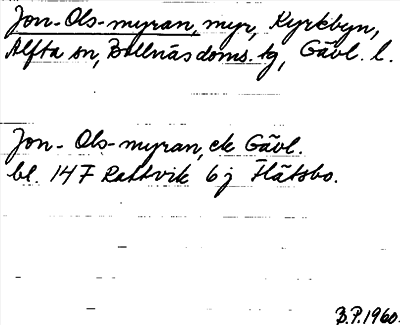 Jon-Ols-myran, myr, Kyrkbyn,
Alfta sn, Bollnäs doms. tg, Gävl. l.
Jon-Ols-myran, ek Gävl.
bl. 14 F Rattvik 6j Flätsbo.
B.P. 1960.